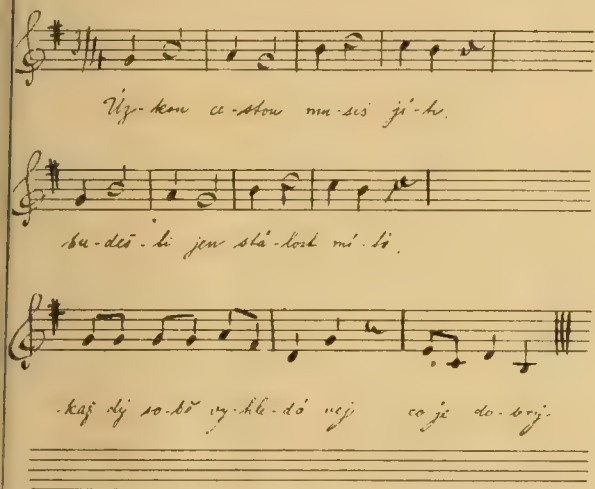 3/4
Úz-kou ce-stou mu-síš jí-ti.
bu-deš-li jen stá-lost mí-ti.
kaž-dý so-bě vy-hle-dá-vej co je do-brý.